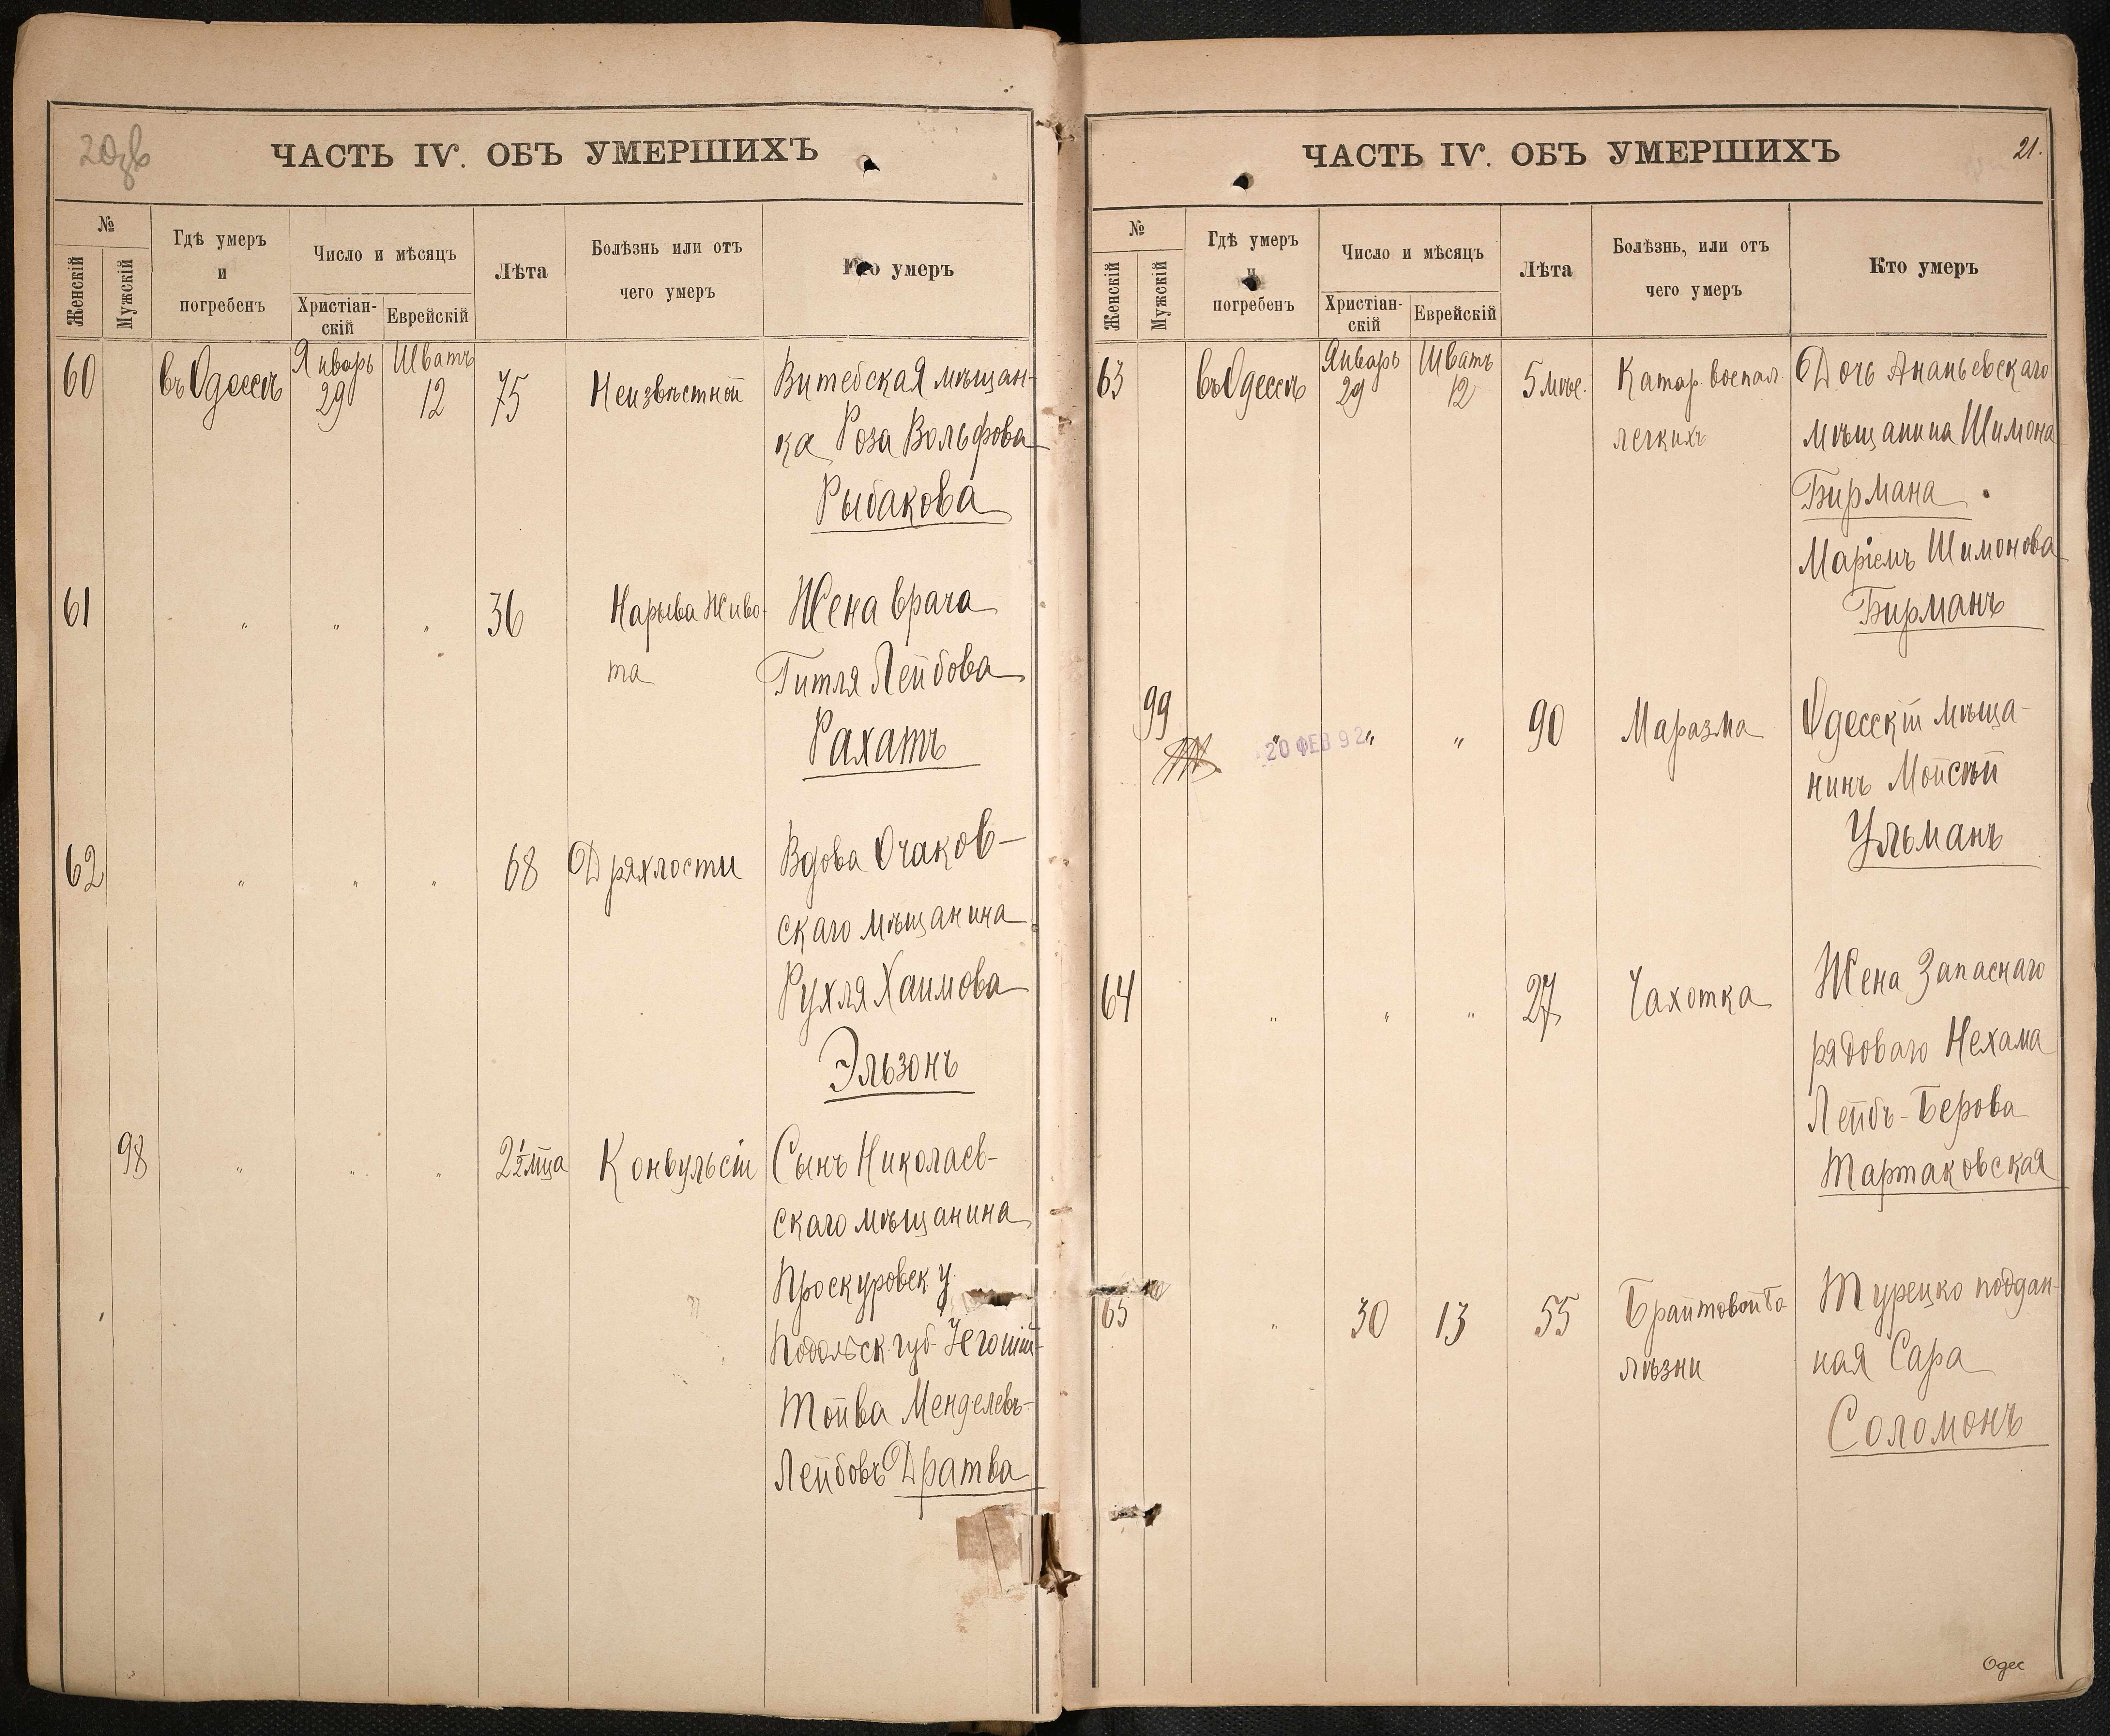 20об
ЧАСТЬ IV. ОБЪ УМЕРШИХЪ
№
Женскій
Мужскій
Гдѣ умеръ
и
погребенъ
Число и мѣсяцъ
Христіан-
скій
Еврейскій
Лѣта
Болѣзнь или отъ
чего умеръ
Кто умеръ
60 въ Одессѣ Январь 29 Шватъ 12 75 Неизвѣстной Витебская мѣщан-
ка Роза Вольфова
Рыбакова
61 " " " 36 Нарыва Живо- Жена врача
та Гитля Лейбова
Рахатъ
62 " " " 68 Дряхлости Вдова Очаков-
скаго мѣщанина
Рухля Хаимова
Эльзонъ
98 " " " 2½ мца Конвульсіи Сынъ Николаев-
скаго мѣщанина
Проскуровск. у.
Подольск. губ.
Тойва Менделевъ-
Лейбовъ Дратва
ЧАСТЬ IV. ОБЪ УМЕРШИХЪ
21.
№
Женскій
Мужскій
Гдѣ умеръ
и
погребенъ
Число и мѣсяцъ
Христіан-
скій
Еврейскій
Лѣта
Болѣзнь, или отъ
чего умеръ
Кто умеръ
63 въ Одессѣ Январь 29 Шватъ 12 5 мѣс. Катар. воспал. Дочь Ананьевскаго
легкихъ мѣщанина Шимона
Бирмана
Маріемъ Шимонова
Бирманъ
99 " " " 90 Маразма Одесскій мѣща-
20 ФЕВ 92
нинъ Мойсѣй
Ульманъ
64 " " " 27 Чахотка Жена Запаснаго
рядоваго Нехама
Лейбъ-Берова
Тартаковская
65 " 30 13 55 Брайтовой бо- Турецко поддан-
лѣзни ная Сара
Соломонъ
Одес